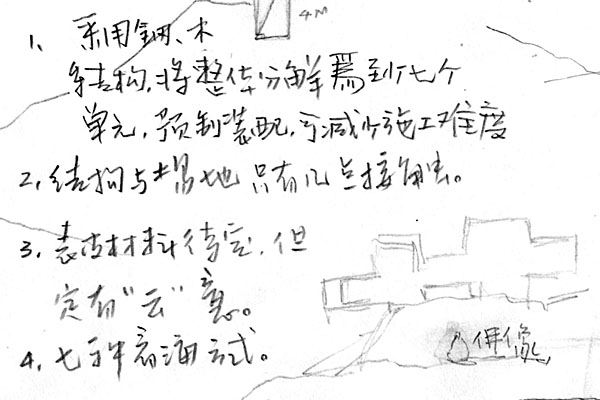 4M
1、采用钢、木
结构，将整体分解焉到十七个
单元，预制装配，可减少施工难度
2，结构与场地只有几点接触。
3，表皮材料待定，但
定有“云”意。
4，七种看海方式。
佛像